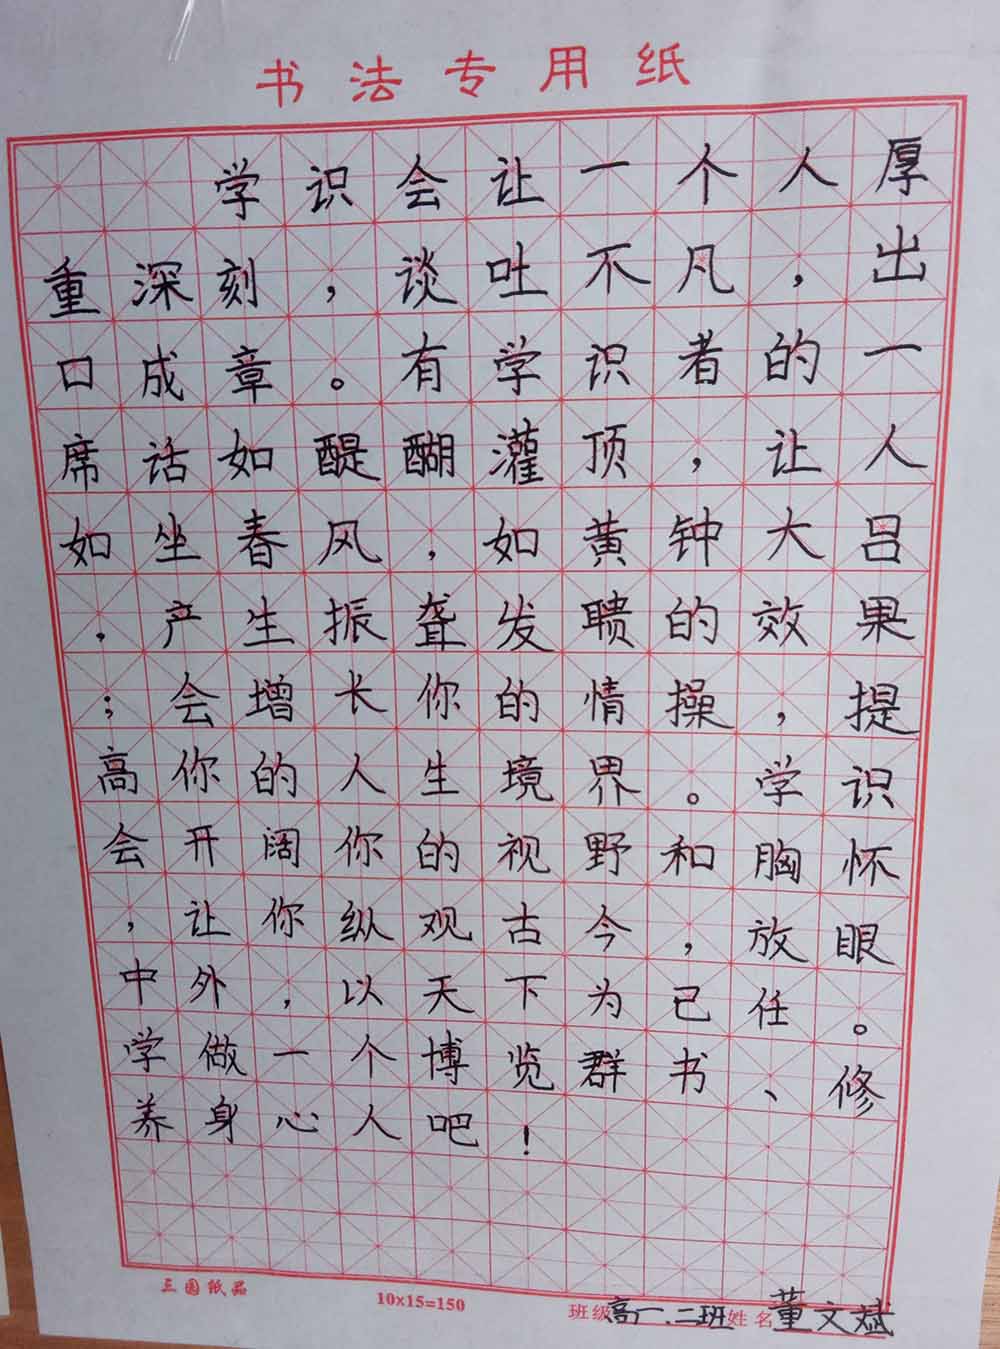 书法专用纸
学识会让一个人厚
重深刻，谈吐不凡，出
口成章。有学识者的一
席话如醍醐灌顶，让人
如坐春风，如黄钟大吕
，产生振聋发聩的效果
；会增长你的情操，提
高你的人生境界。学识
会开阔你的视野和胸怀
，让你纵观古今，放眼
中外，以天下为己任。
学做一个博览群书、修
养身心人吧！
三圆纸品 10×15=150 班级高一.二班姓名董文斌